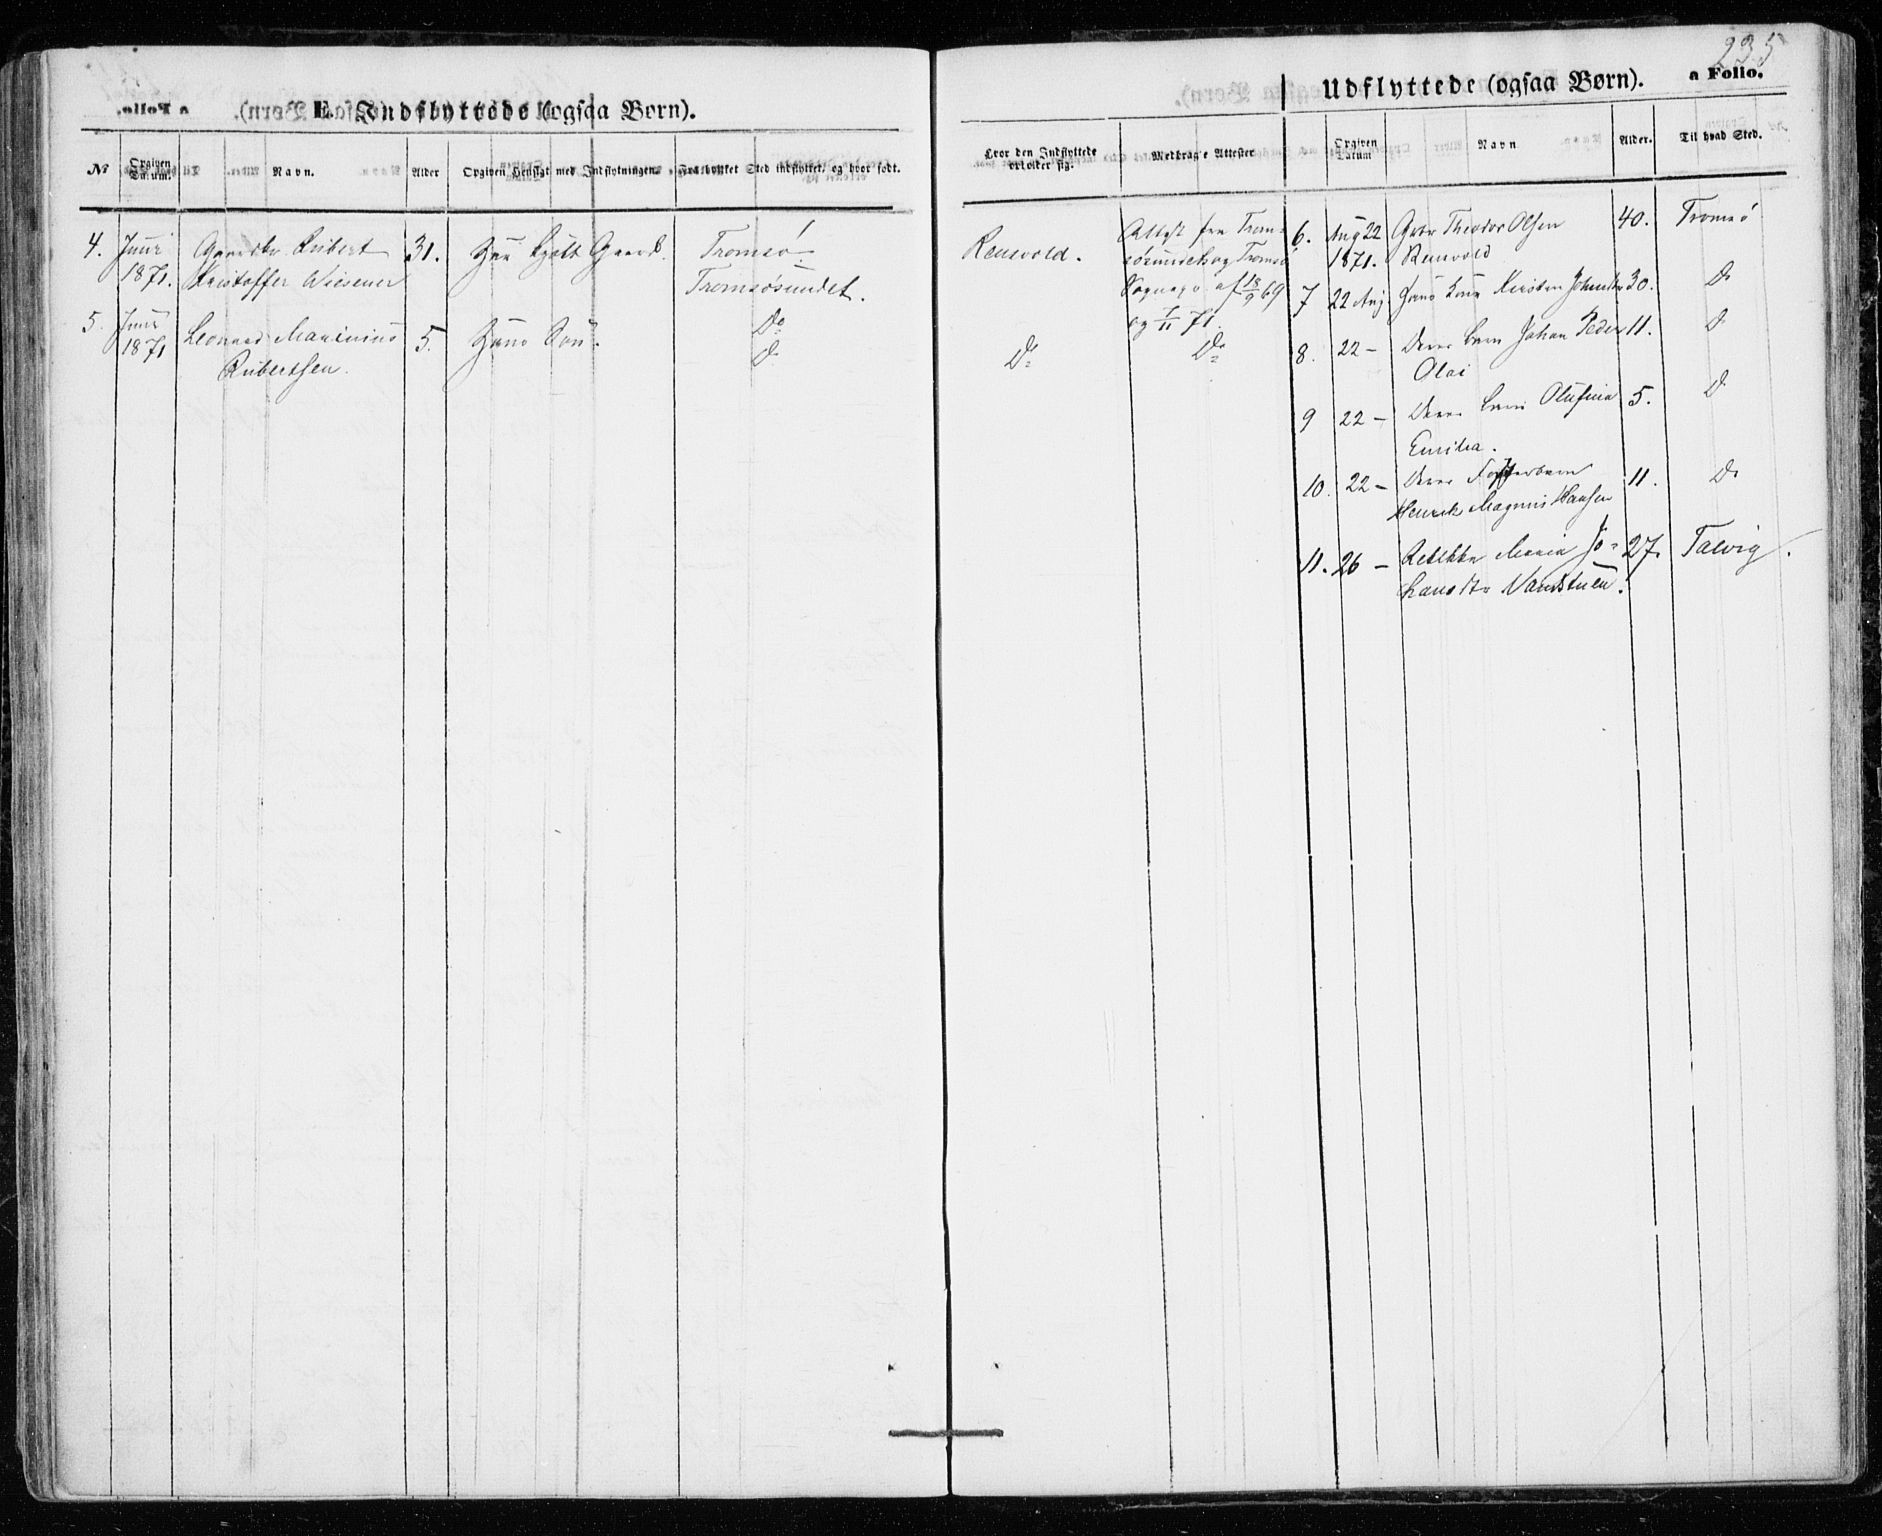 235
E. Indflyttede (ogsaa Børn).
Udflyttede (ogsaa Børn).
a Folio.
№
Opgiven Datum.
Navn.
Alder
Opgiven Hensigt med Indflytningen.
Fra hvilket Sted indflyttet, og hvor født.
Hvor den Indflyttede opholder sig.
Medbragte Attester
Opgiven Datum
Navn
Alder.
Til hvad Sted.
4. Juni Gaardbr Rubert 31. Han kjøbt Gaard. Tromsø.
1871. Kristoffer Wiesener Tromsøsundet.
Renvold. Attest fra Trom-
søsundet og Tromsø
Sognepr af 18/9 69
og 7/11 71.
5. Juni Leonard Marinius 5. Hans Søn. Do
1871 Rubertsen. Do
Do Do
6. Aug 22 Gbr Theodor Olsen 40. Tromsø
1871. Renvold
7 22 Aug Hans Kone Kirsten Johnsdtr 30. Do
8. 22 – Deres barn Johan Peder 11. Do
Olai
9 22 – Deres barn Olufine 5. Do
Emilea.
10. 22 – Deres Fosterbarn 11. Do
Henrik Magnus Hansen
11. 26 – Rebekka Maria Jo- 27. Talvig.
hansdtr Vandstuen.